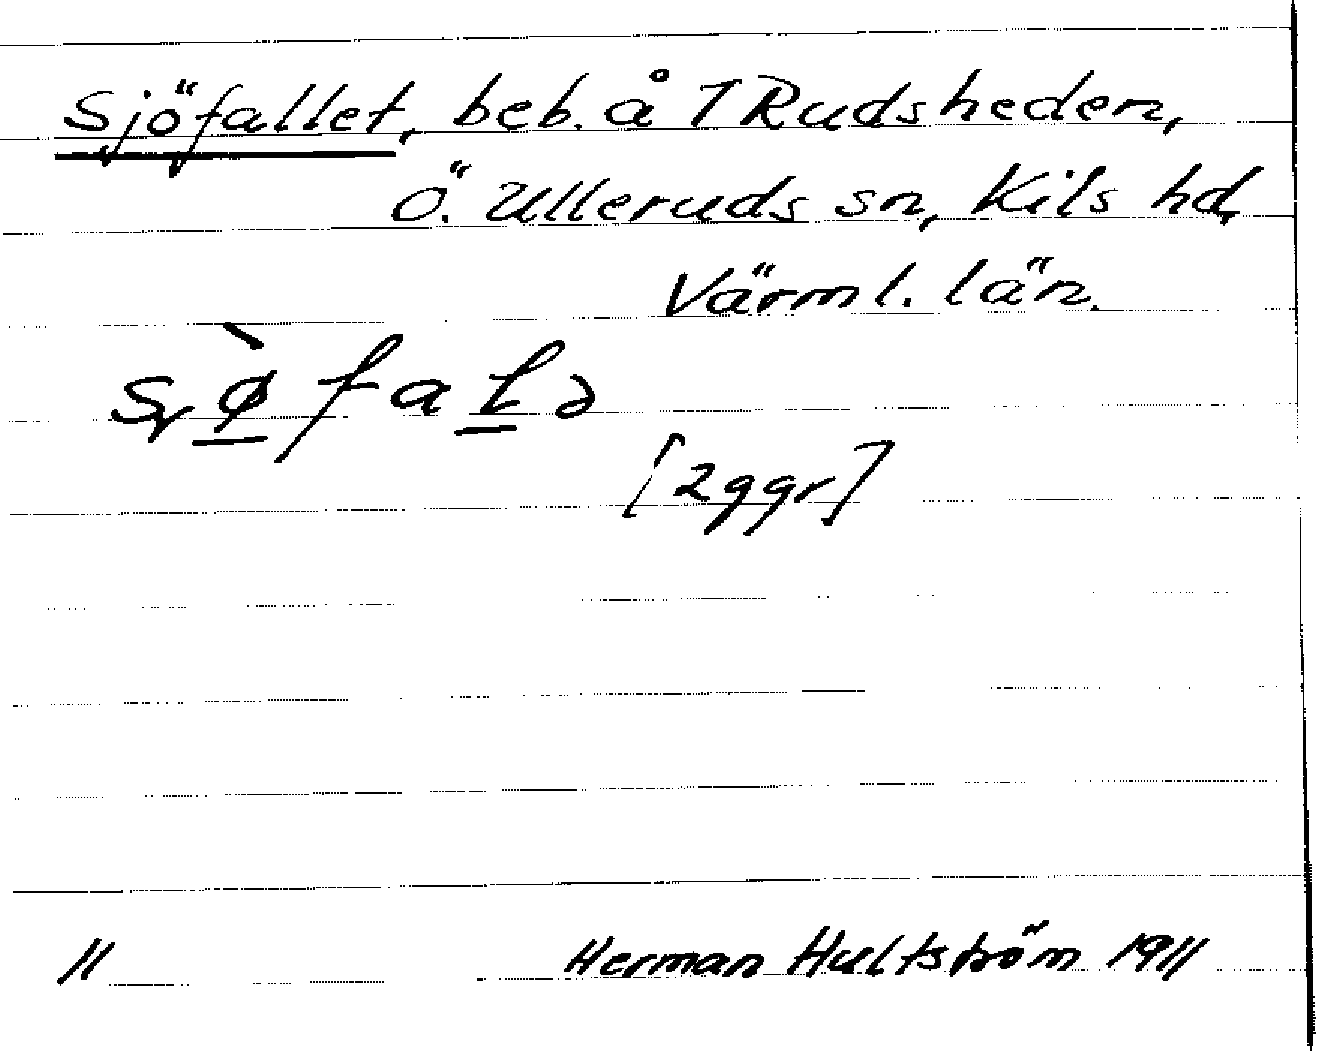 Sjöfallet, beb. å 1 Rudsheden,
Ö. Ulleruds sn, Kils hd,
Värml. län.
[2ggr]
11 Herman Hultström 1911